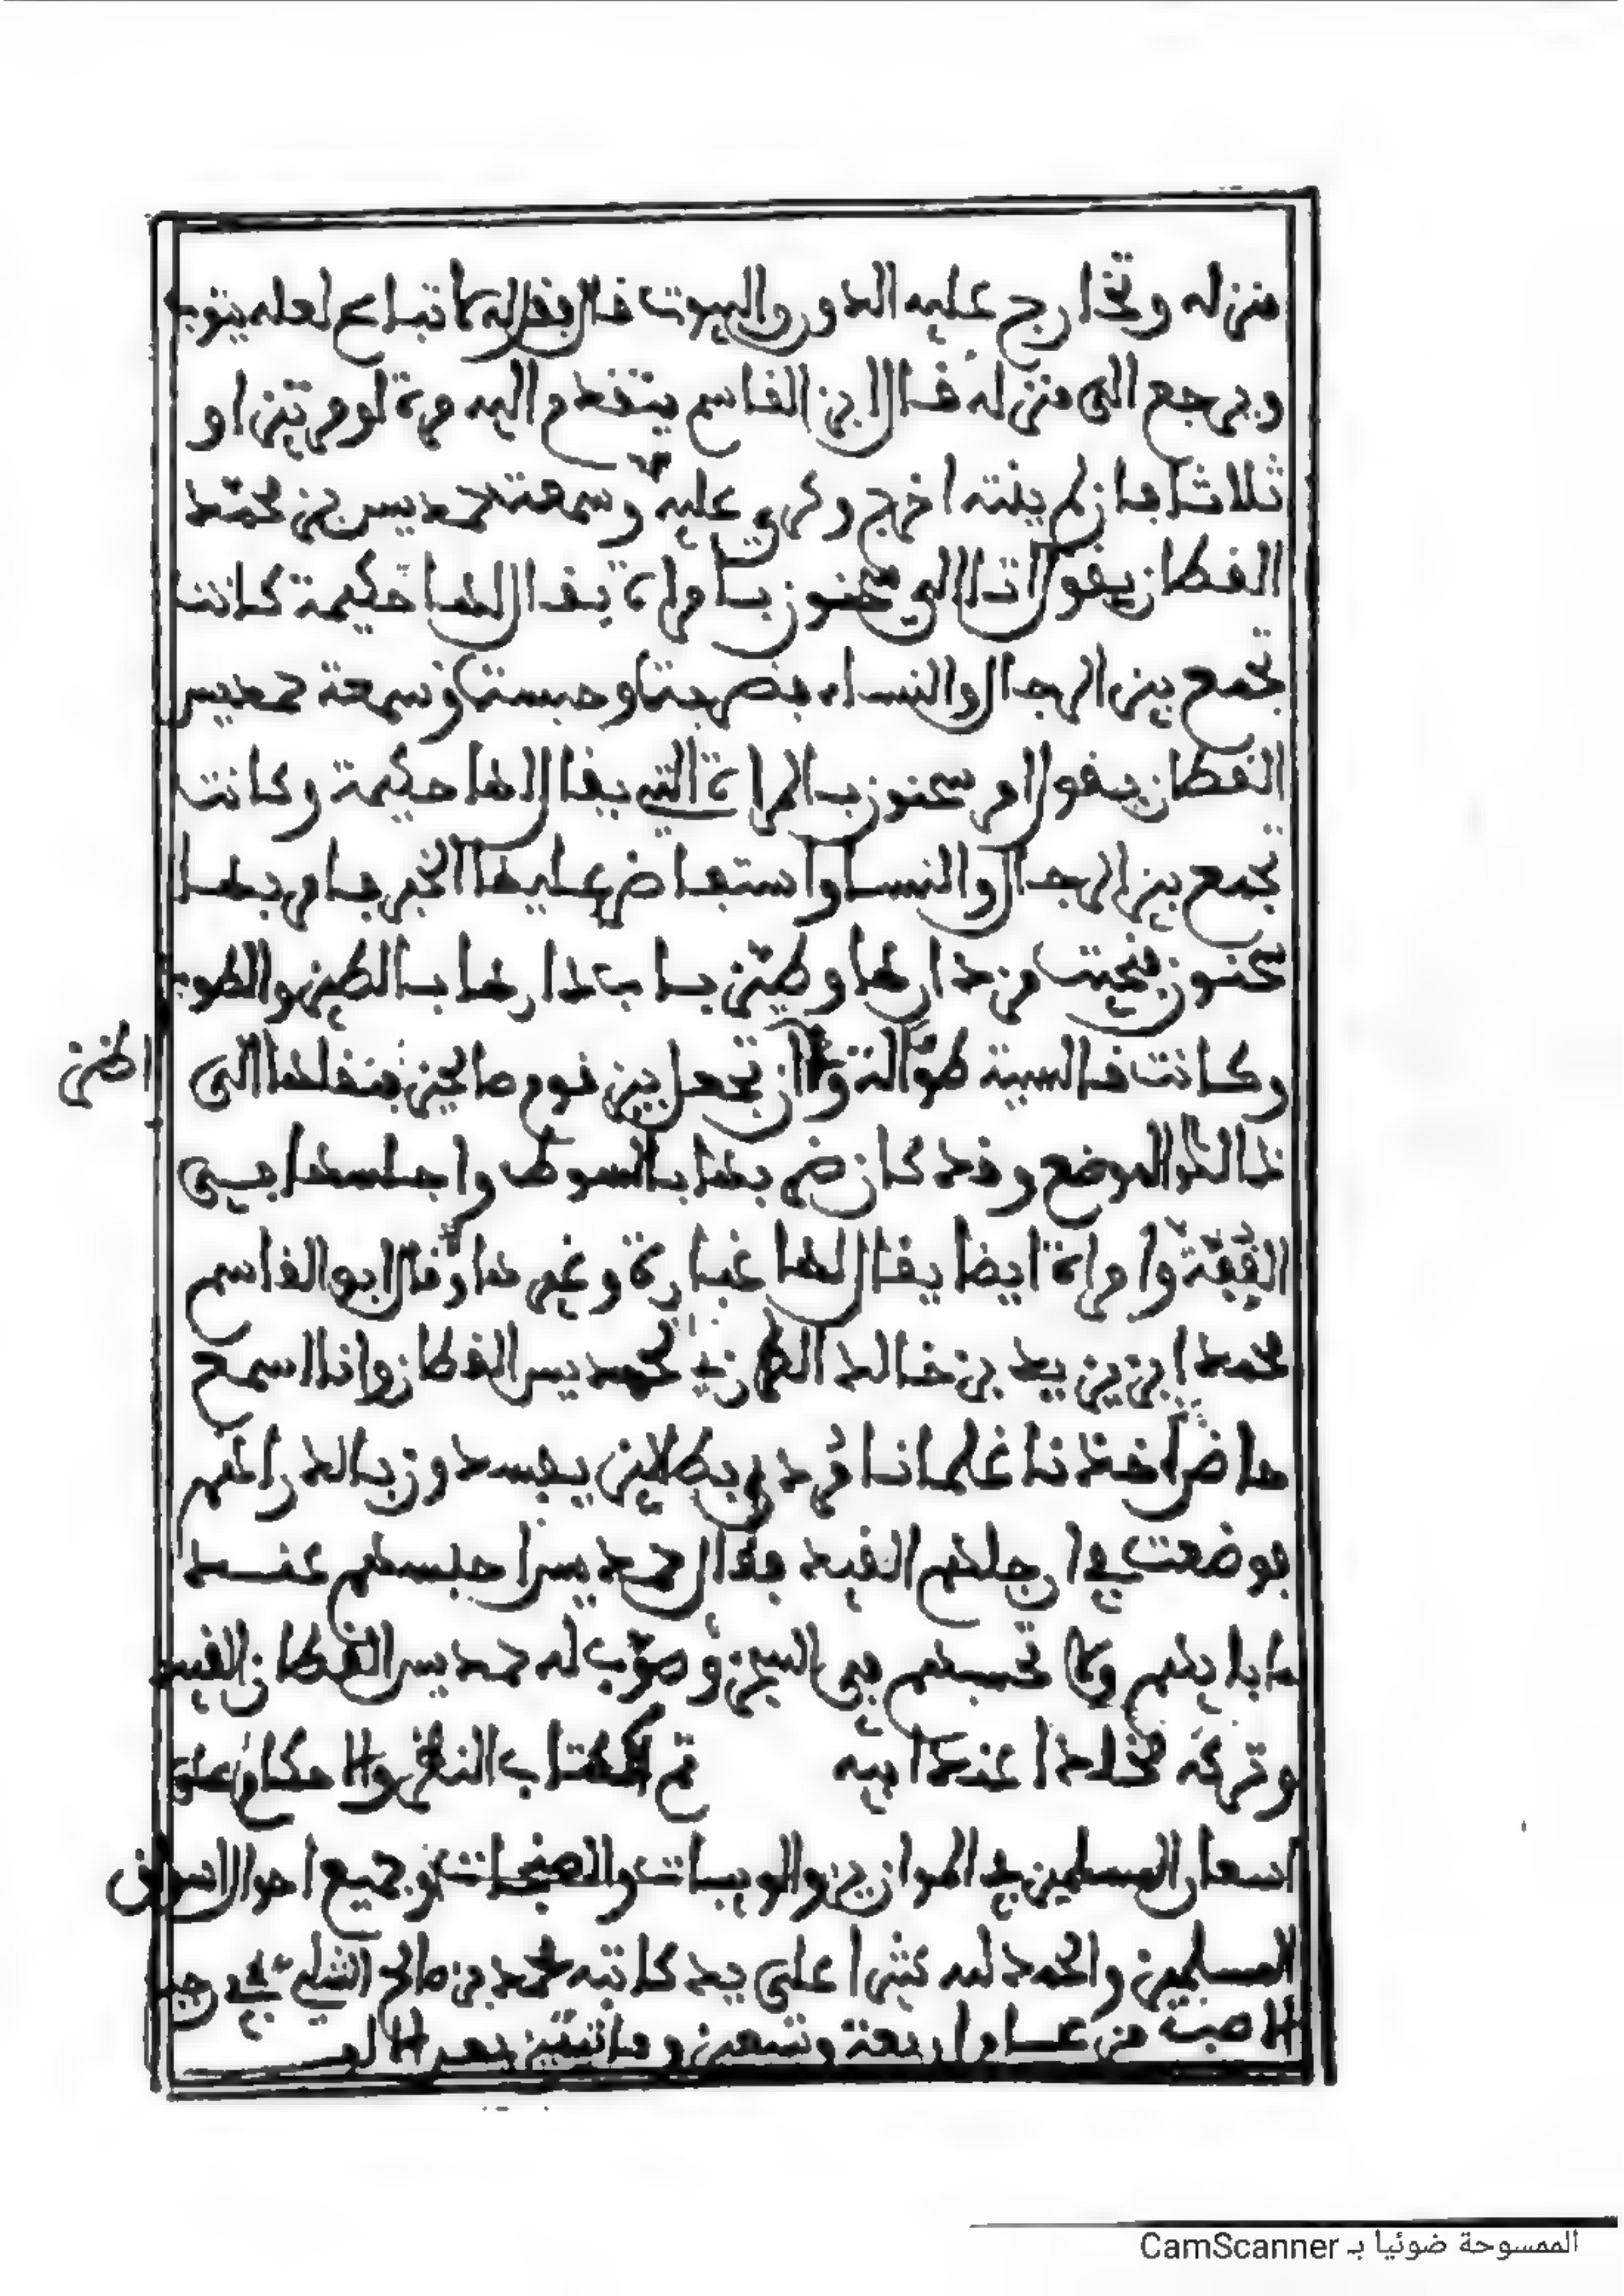 منزله وتخارج عليه الدور والبيوت قال فقال له لا تباع لعله يتوب
ويرجع الى منزله قال ابن القاسم يتقدم اليه مرة او مرتين او
ثلاثا فان لم ينته اخرج وكري عليه وسمعة حمديس بن محمد
القطان يقول اتا الي سحنون بامراة يقال لها حكيمة كانت
تجمع بين الرجال والنساء فضربت وحبست وسمعة حمديس
القطان يقول امر سحنون بالمراة التي يقال لها حكيمة وكانت
تجمع بين الرجال والنسا واستفاض عليها الخبر فامر بها
سحنون فنحيت من دارها وطين باب دارها بالطين والطوب
وكانت قالسية طوالة وان تجعل بين قوم صالحين فنقلها الى
الخز
ذالك الموضع وقد كان ضربها بالسوط واجلسها في
القفة وامراة ايضا يقال لها غبارة وغير هاذ قال ابو القاسم
محمد ابن يزيد بن خالد الطرزي لحمديس القطان وانا اسمع
حاضر اخذنا غلمانا مرد بطالين يفسدون بالدراهم
فوضعت في ارجلهم القيد فقال حمديس احبسهم عند
ءابايهم ولا تحبسهم في السجن وصوب له حمديس القطان القيد
وتركه مخلدا عند ابيه تم الكتاب النظر والاحكام على
اسعار المسلمين في الموازين والويبات والصنجات وجميع احوال اسواق
المسلمين والحمد لله كثيرا على يد كاتبه محمد بن صالح الشلي في رجب
الاصب من عام اربعة وتسعين ومائتين بعد الالف
الممسوحة ضوئيا بـ CamScanner